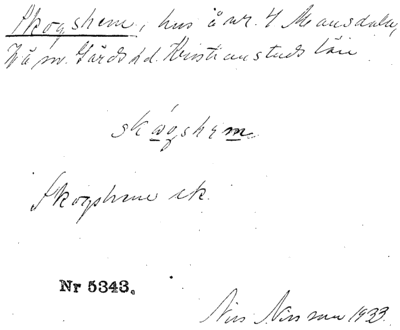 Skogshem, hus å nr. 4 Månsdala,
Vä sn. Gärds hd. Kristianstads län
skógshem
Skogshem ek.
Nr 5343.
Nils Nilsson 1933.